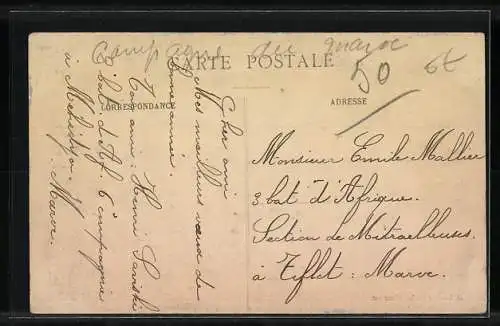 Campagne du maroc
CARTE POSTALE
50
6t
CORRESPONDANCE
ADRESSE
Cher ami
Mes meilleurs vœux de
bonne année.
Ton ami: Henri
3 bat. d'Af. 6 compagnie
à Mehedya. Maroc.
Monsieur Emile Mallier
3 bat d'Afrique.
Section de Mitrailleuses.
à Tiflet: Maroc.